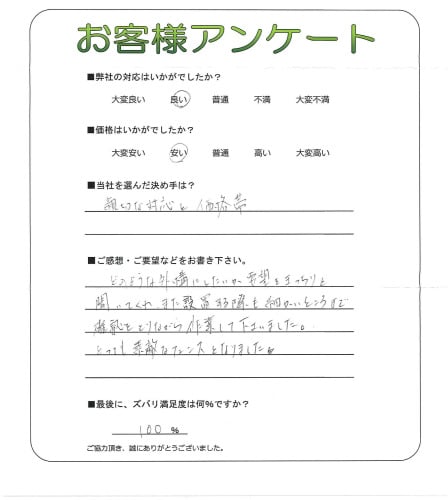 お客様アンケート
■弊社の対応はいかがでしたか？
大変良い 良い 普通 不満 大変不満
■価格はいかがでしたか？
大変安い 安い 普通 高い 大変高い
■当社を選んだ決め手は？
親切な対応と価格帯
■ご感想・ご要望などをお書き下さい。
どのような外構にしたいか要望をきっちりと
聞いてくれ、また設置する際も細かいところまで
確認をとりながら作業して下さいました。
とっても素敵なフェンスとなりました。
■最後に、ズバリ満足度は何％ですか？
100 ％
ご協力頂き、誠にありがとうございました。